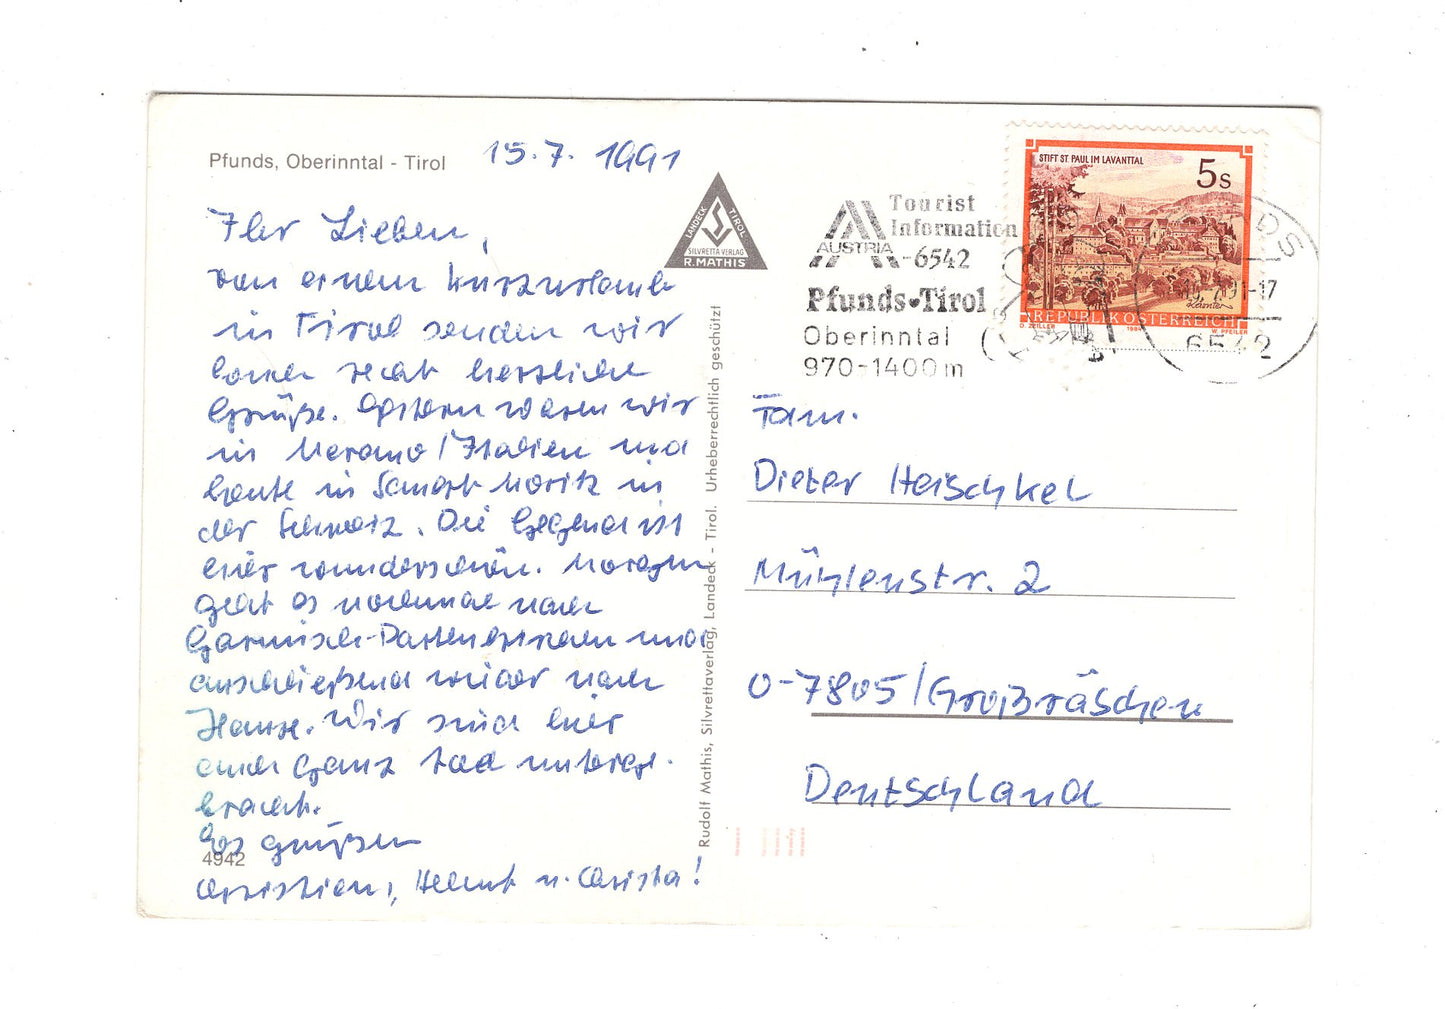 Pfunds, Oberinntal - Tirol
15.7. 1991
Ihr Lieben,
von einem Kurzurlaub
in Tirol senden wir
Euch recht herzliche
Grüße. Gestern waren wir
in Merano/Italien und
heute in Sankt Moritz in
der Schweiz. Die Gegend ist
hier wunderschön. Morgen
geht es nochmal nach
Garmisch-Partenkirchen und
anschließend wieder nach
Hause. Wir sind hier
auch ganz toll unterge-
bracht.
Es grüßen
Christian, Helmut u. Christa!
4942
LANDECK TIROL
SILVRETTA VERLAG
R. MATHIS
Rudolf Mathis, Silvrettaverlag, Landeck - Tirol. Urheberrechtlich geschützt
AUSTRIA
Tourist
Information
-6542
Pfunds-Tirol
Oberinntal
970-1400m
STIFT ST. PAUL IM LAVANTTAL
5s
Kärnten
REPUBLIK ÖSTERREICH
O. ZEILLER
W. PFEILER
NDS
91-17
6542
Fam.
Dieter Heischkel
Mühlenstr. 2
O-7805/Großräschen
Deutschland